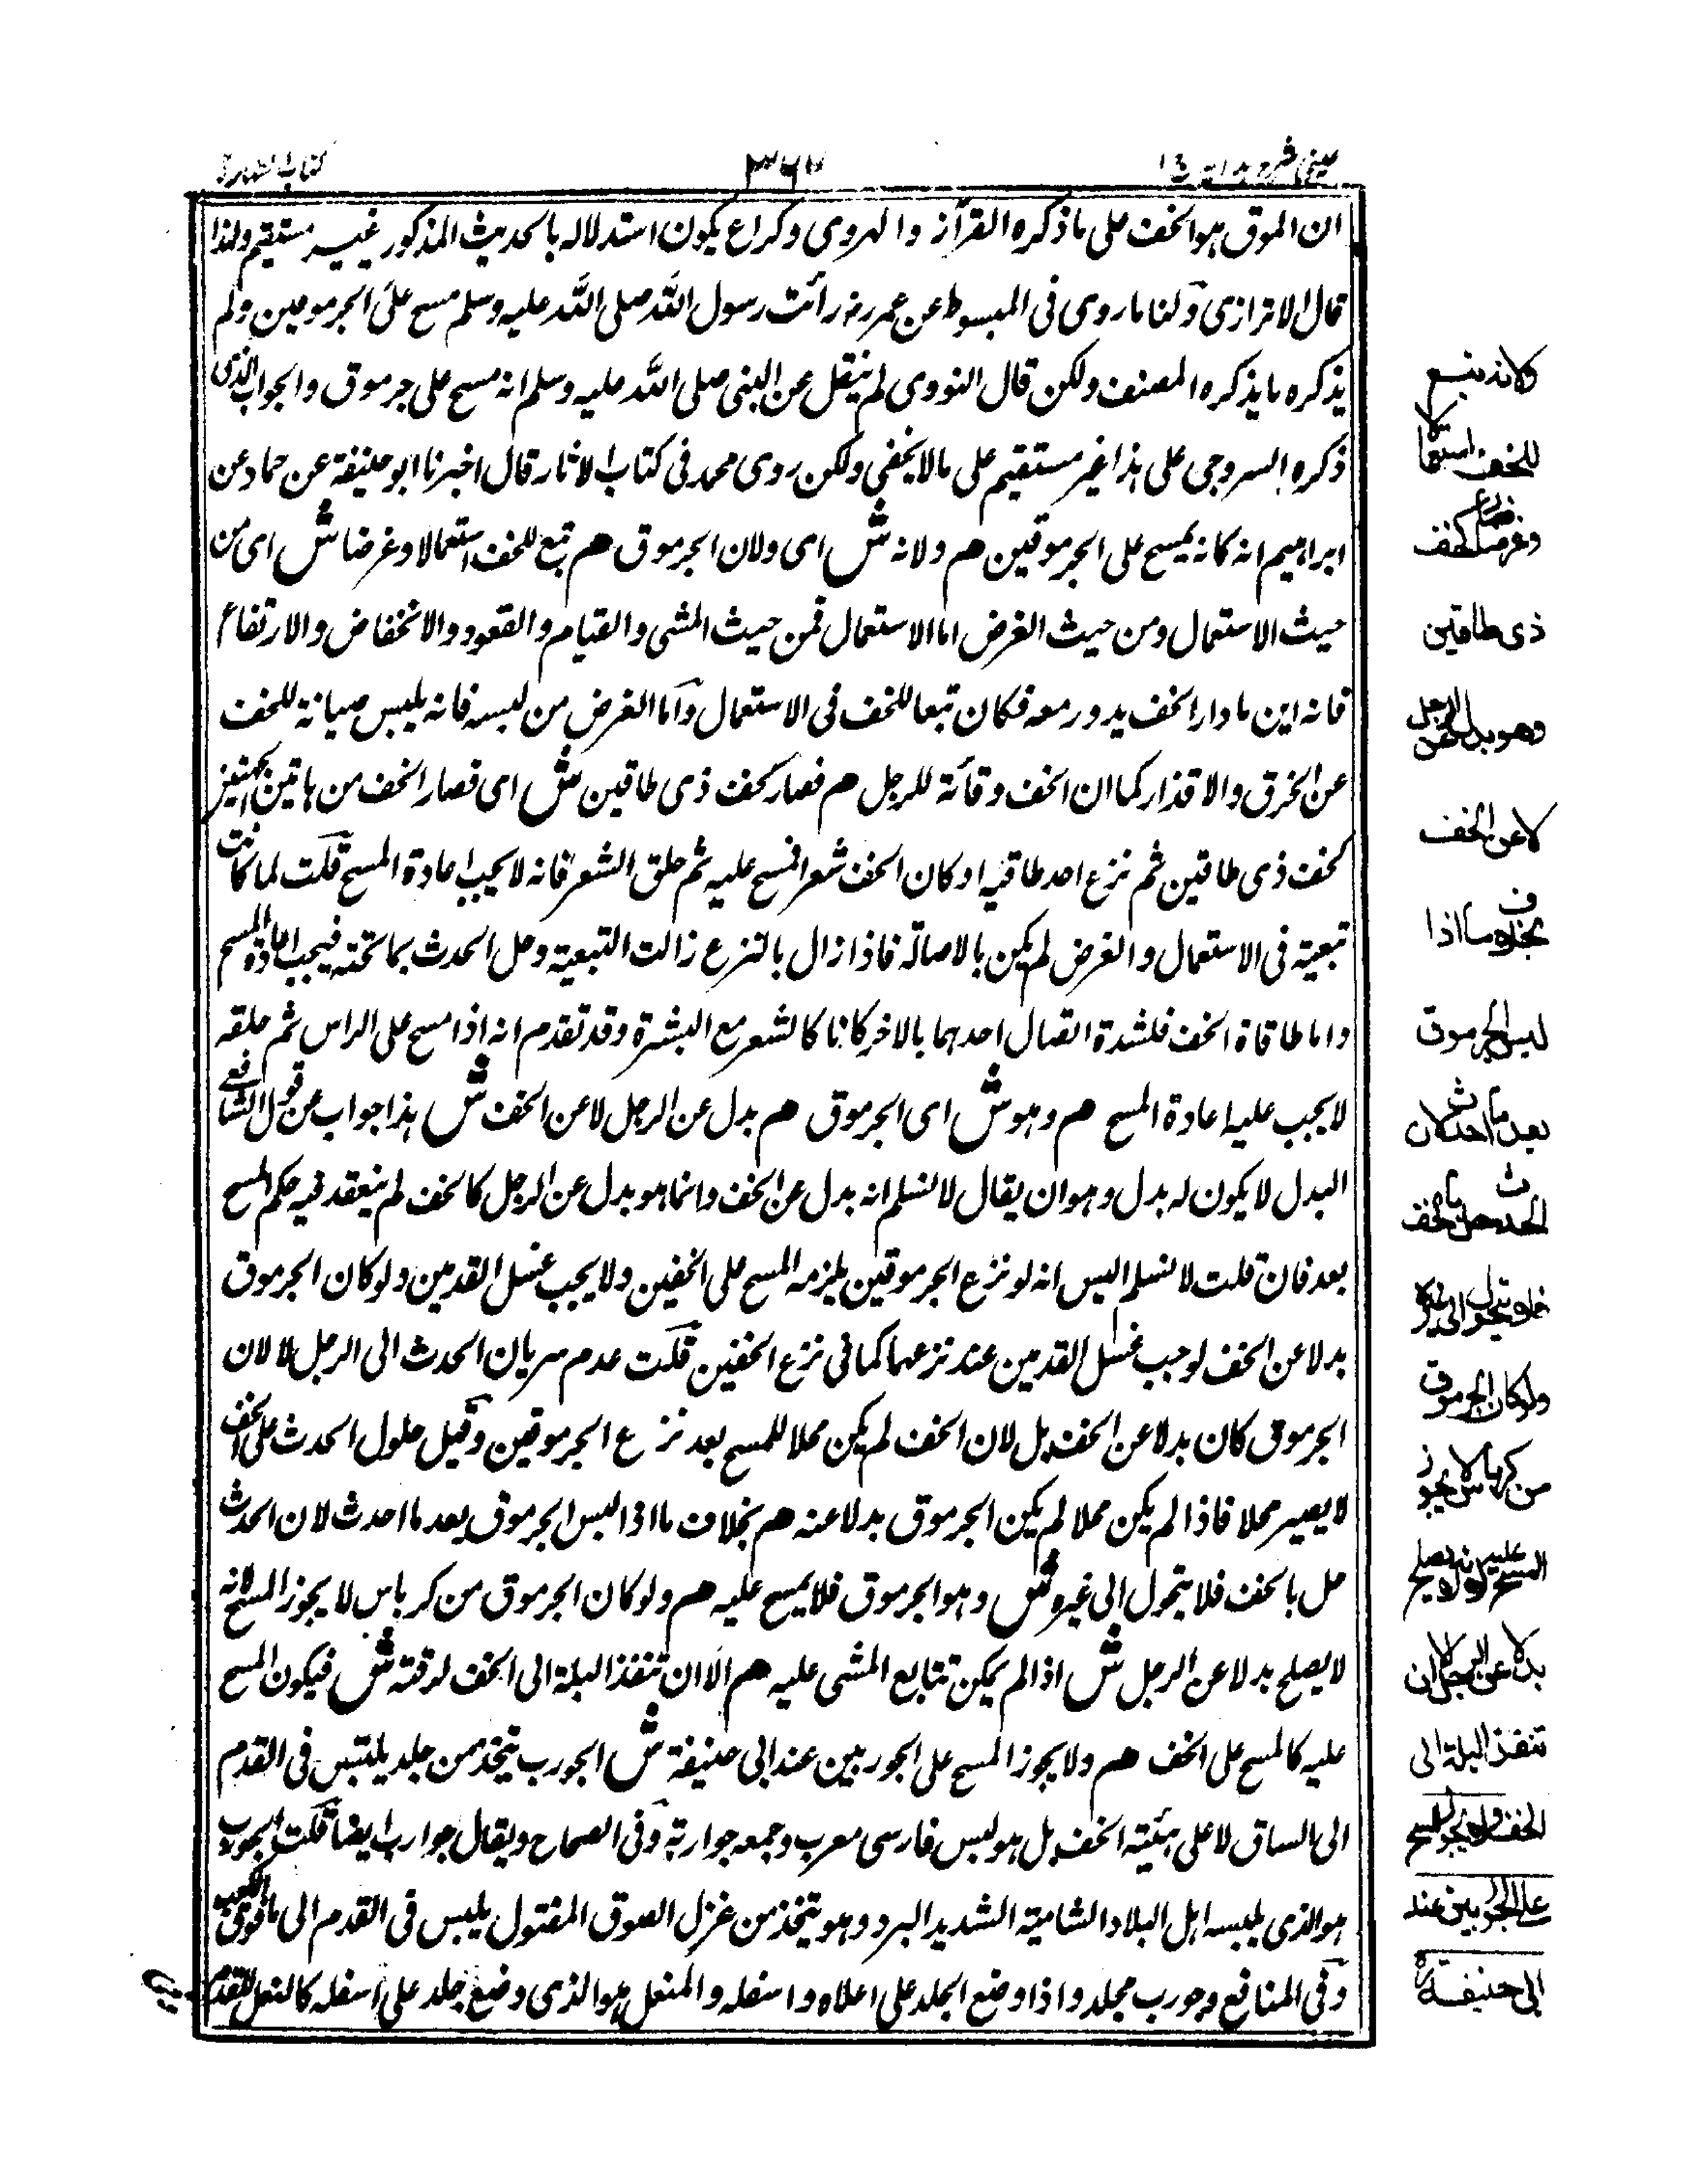 عینی شرح هدایه ج ۱
۳۶۲
کتاب الطهارة
ان الموق هو الخف علی ما ذکره القرآنه والهروی وکراع یکون استدلاله بالحدیث المذکور غیر مستقیم ولهذا
قال الاترازی ولنا ما روی فی المبسوط عن عمر رضہ رائت رسول الله صلی الله علیه وسلم مسح علی الجرموقین ولم
یذکره ما یذکره المصنف ولکن قال النووی لم ینقل عن النبی صلی الله علیه وسلم انه مسح علی جرموق والجواب الذی
ذکره السروجی علی هذا غیر مستقیم علی ما لا یخفی ولکن روی محمد فی کتاب الاثار قال اخبرنا ابو حنیفة عن حماد عن
ابراهیم انه کانه یمسح علی الجرموقین هم ولانه ش ای ولان الجرموق هم تبع للخف استعمالا وغرضا ش ای من
حیث الاستعمال ومن حیث الغرض اما الاستعمال فمن حیث المشی والقیام والقعود والانخفاض والارتفاع
فانه این ما دار الخف یدور معه فکان تبعا للخف فی الاستعمال واما الغرض من لبسه فانه یلبس صیانة للخف
عن الخرق والاقذار کما ان الخف وقائة للرجل هم فصار کخف ذی طاقین ش ای فصار الخف من هاتین الجهتین
کخف ذی طاقین ثم نزع احد طاقیه او کان الخف شعرا فمسح علیه ثم حلق الشعر فانه لا یجب اعادة المسح قلت لما کانت
تبعیة فی الاستعمال والغرض لم یکن بالاصالة فاذا زال بالنزع زالت التبعیة وحل الحدث بما تحته فیجب اعادة المسح
واما طاقاة الخف فلشدة اتصال احدهما بالاخر کانا کالشعر مع البشرة وقد تقدم انه اذا مسح علی الراس ثم حلقه
لا یجب علیه اعادة المسح هم وهو ش ای الجرموق هم بدل عن الرجل لا عن الخف ش هذا جواب عن قول الشافعی
البدل لا یکون له بدل وهو ان یقال لا نسلم انه بدل عن الخف وانما هو بدل عن الرجل کالخف لم ینعقد فیه حکم المسح
بعد فان قلت لا نسلم الیس انه لو نزع الجرموقین یلزمه المسح علی الخفین ولا یجب غسل القدمین ولو کان الجرموق
بدلا عن الخف لوجب غسل القدمین عند نزعهما کما فی نزع الخفین قلت عدم سریان الحدث الی الرجل لا لان
الجرموق کان بدلا عن الخف بل لان الخف لم یکن محلا للمسح بعد نزع الجرموقین وقیل حلول الحدث علی الخف
لا یصیر محلا فاذا لم یکن محلا لم یکن الجرموق بدلا عنه هم بخلاف ما اذا لبس الجرموق بعد ما احدث لان الحدث
حل بالخف فلا یتحول الی غیره ش وهو الجرموق فلا یمسح علیه هم ولو کان الجرموق من کرباس لا یجوز المسح لانه
لا یصلح بدلا عن الرجل ش اذا لم یکن تتابع المشی علیه هم الا ان تنفذ البلة الی الخف لرقته ش فیکون المسح
علیه کالمسح علی الخف هم ولا یجوز المسح علی الجوربین عند ابی حنیفة ش الجورب یتخذ من جلد یلبس فی القدم
الی الساق لا علی هیئة الخف بل هو لبس فارسی معرب وجمعه جواربة وفی الصحاح ویقال جوارب ایضا قلت الجورب
هو الذی یلبسه اهل البلاد الشامیة الشدید البرد وهو یتخذ من غزل الصوف المفتول یلبس فی القدم الی ما فوق الکعب
وفی المنافع وجورب مجلد واذا وضع الجلد علی اعلاه واسفله والمنعل هو الذی وضع جلد علی اسفله کالنعل للقدم
لانه تبع
للخف استعمالا
وغرضا فصار کخف
ذی طاقین
وهو بدل عن الرجل
لا عن الخف
بخلاف ما اذا
لبس الجرموق
بعد ما احدث لان
الحدث حل بالخف
فلا یتحول الی غیره
ولو کان الجرموق
من کرباس لا یجوز
المسح علیه لانه لا یصلح
بدلا عن الرجل الا ان
تنفذ البلة الی
الخف ولا یجوز المسح
علی الجوربین عند
ابی حنیفة رح